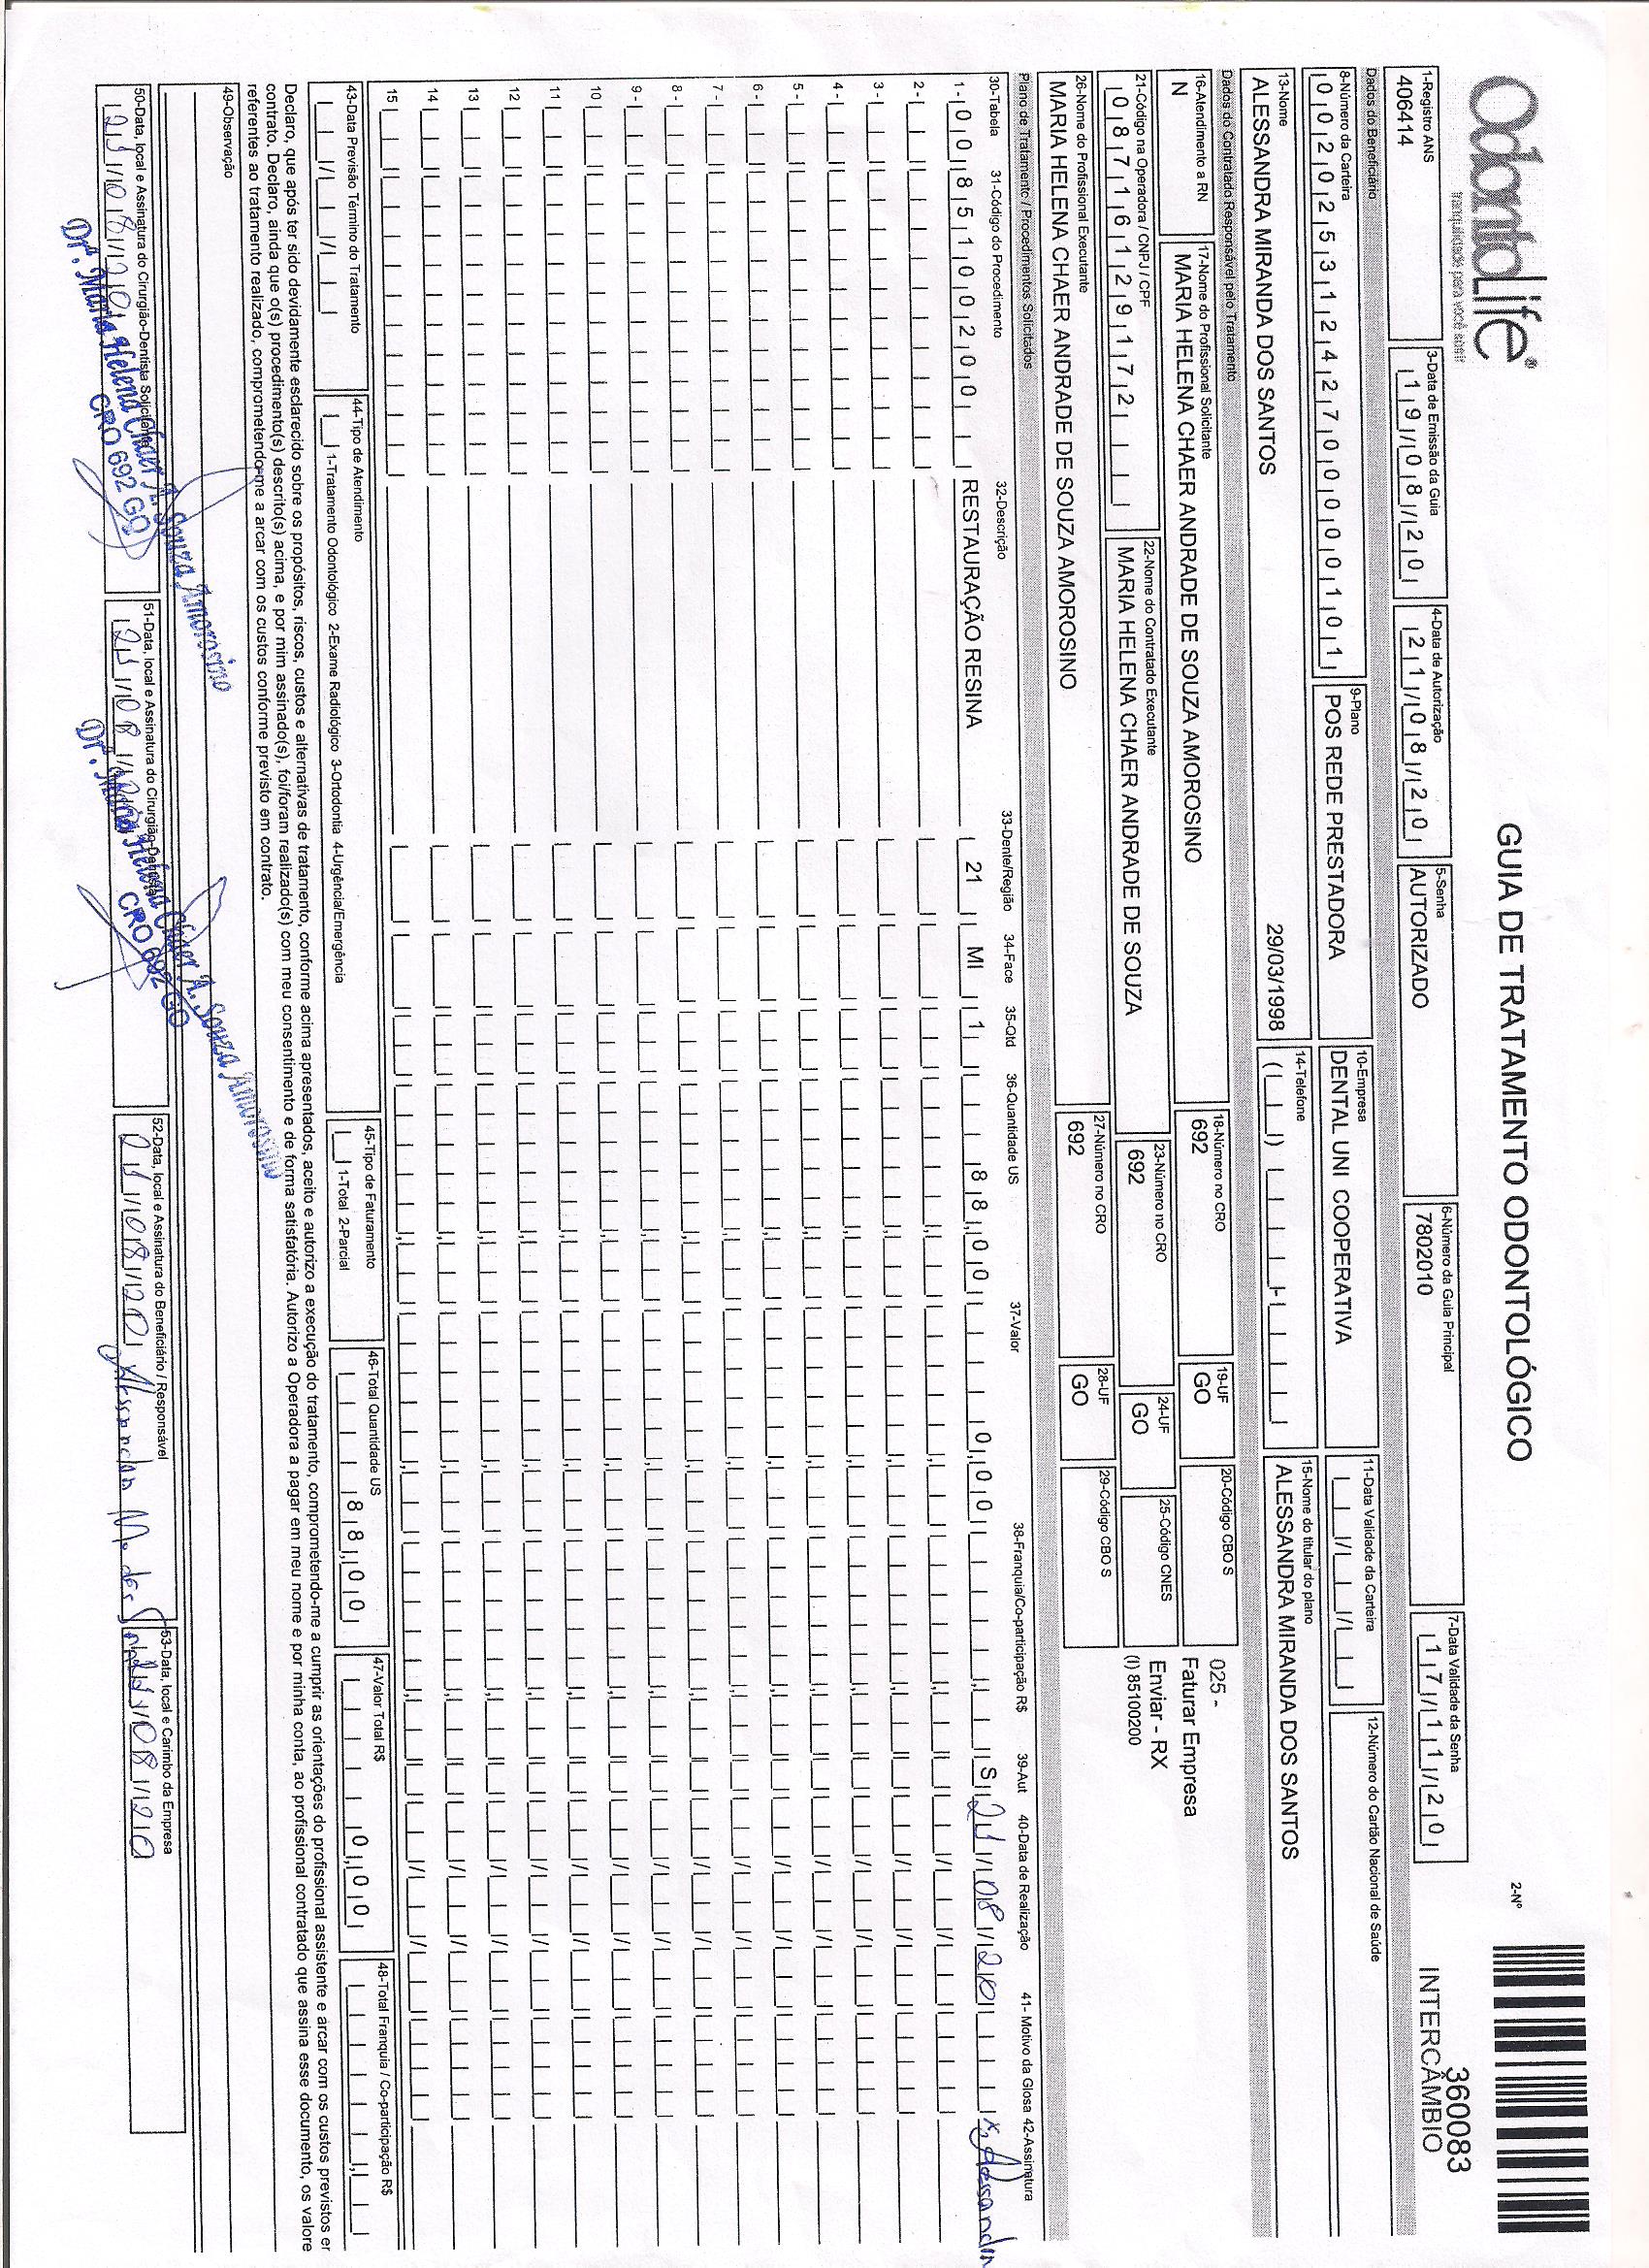 OdontoLife®
tranquilidade para você sorrir
GUIA DE TRATAMENTO ODONTOLÓGICO
2-Nº
360083
INTERCÂMBIO
1-Registro ANS
406414
3-Data de Emissão da Guia
19/08/20
4-Data de Autorização
21/08/20
5-Senha
AUTORIZADO
6-Número da Guia Principal
7802010
7-Data Validade da Senha
17/11/20
Dados do Beneficiário
8-Número da Carteira
00202531242700000101
9-Plano
POS REDE PRESTADORA
10-Empresa
DENTAL UNI COOPERATIVA
11-Data Validade da Carteira
12-Número do Cartão Nacional de Saúde
13-Nome
ALESSANDRA MIRANDA DOS SANTOS 29/03/1998
14-Telefone
15-Nome do titular do plano
ALESSANDRA MIRANDA DOS SANTOS
Dados do Contratado Responsável pelo Tratamento
16-Atendimento a RN
N
17-Nome do Profissional Solicitante
MARIA HELENA CHAER ANDRADE DE SOUZA AMOROSINO
18-Número no CRO
692
19-UF
GO
20-Código CBO S
025 -
Faturar Empresa
Enviar - RX
(I) 85100200
21-Código na Operadora / CNPJ / CPF
08716129172
22-Nome do Contratado Executante
MARIA HELENA CHAER ANDRADE DE SOUZA
23-Número no CRO
692
24-UF
GO
25-Código CNES
26-Nome do Profissional Executante
MARIA HELENA CHAER ANDRADE DE SOUZA AMOROSINO
27-Número no CRO
692
28-UF
GO
29-Código CBO S
Plano de Tratamento / Procedimentos Solicitados
30-Tabela 31-Código do Procedimento 32-Descrição 33-Dente/Região 34-Face 35-Qtd 36-Quantidade US 37-Valor 38-Franquia/Co-participação R$ 39-Aut 40-Data de Realização 41- Motivo da Glosa 42-Assinatura
1- 00 85100200 RESTAURAÇÃO RESINA 21 MI 1 88,00 0,00 S 21/08/20
2 -
3 -
4 -
5 -
6 -
7 -
8 -
9 -
10
11
12
13
14
15
43-Data Previsão Término do Tratamento
44-Tipo de Atendimento
1-Tratamento Odontológico 2-Exame Radiológico 3-Ortodontia 4-Urgência/Emergência
45-Tipo de Faturamento
1-Total 2-Parcial
46-Total Quantidade US
88,00
47-Valor Total R$
0,00
48-Total Franquia / Co-participação R$
Declaro, que após ter sido devidamente esclarecido sobre os propósitos, riscos, custos e alternativas de tratamento, conforme acima apresentados, aceito e autorizo a execução do tratamento, comprometendo-me a cumprir as orientações do profissional assistente e arcar com os custos previstos er
contrato. Declaro, ainda que o(s) procedimento(s) descrito(s) acima, e por mim assinado(s), foi/foram realizado(s) com meu consentimento e de forma satisfatória. Autorizo a Operadora a pagar em meu nome e por minha conta, ao profissional contratado que assina esse documento, os valore
referentes ao tratamento realizado, comprometendo-me a arcar com os custos conforme previsto em contrato.
49-Observação
50-Data, local e Assinatura do Cirurgião-Dentista Solicitante
21/08/20
Drª. Maria Helena Chaer A. Souza Amorosino
CRO 692 GO
51-Data, local e Assinatura do Cirurgião-Dentista
21/08/20
Drª. Maria Helena Chaer A. Souza Amorosino
CRO 692 GO
52-Data, local e Assinatura do Beneficiário / Responsável
21/08/20 Alessandra M. dos Santos
53-Data, local e Carimbo da Empresa
21/08/20